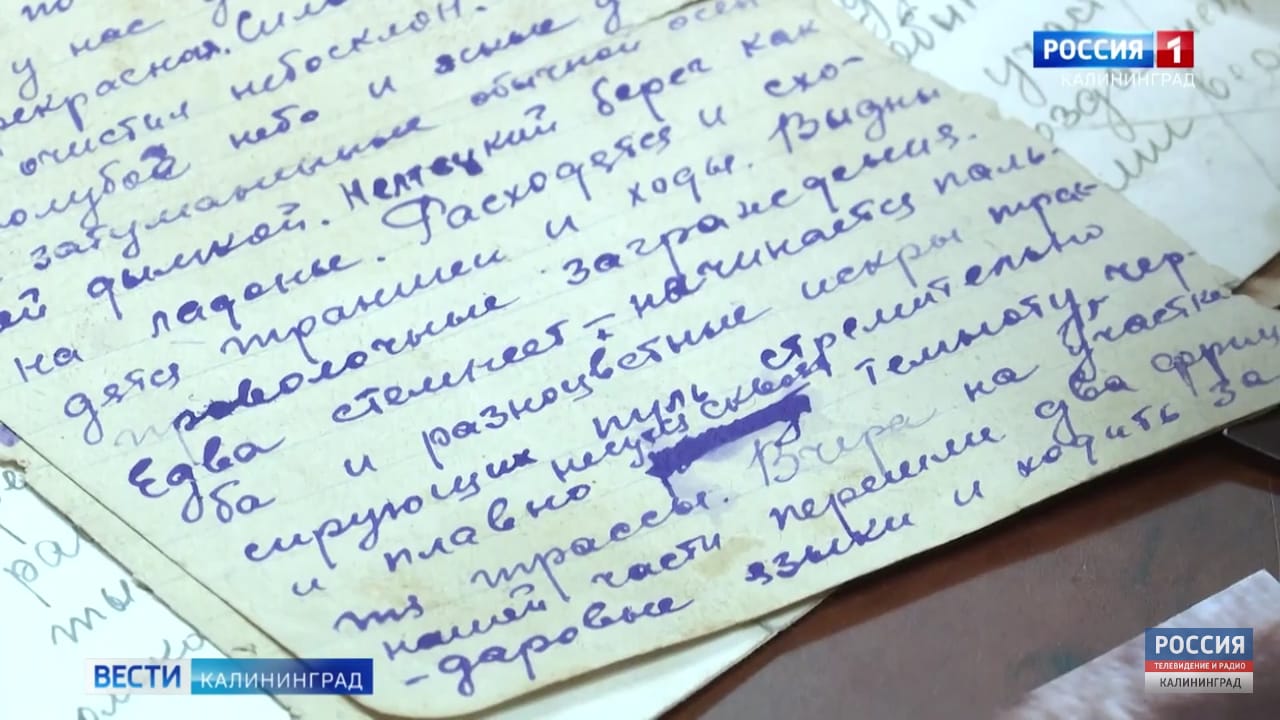 у нас
прекрасная. Сил
очистил небосклон.
голубой небо и ясные
затуманные обычной осен
ей дымкой. Немецкий берег как
на ладоне. Расходятся и схо-
дятся траншеи и ходы. Видны
проволочные заграждения.
Едва стемнеет - начинается паль-
ба и разноцветные искры трас-
сирующих пуль стремительно
и плавно несутся сквозь темноту, чер-
тя трассы. Вчера на участке
нашей части перешли два фрица
- даровые языки и ходить за
РОССИЯ 1
КАЛИНИНГРАД
ВЕСТИ КАЛИНИНГРАД
РОССИЯ
ТЕЛЕВИДЕНИЕ И РАДИО
КАЛИНИНГРАД